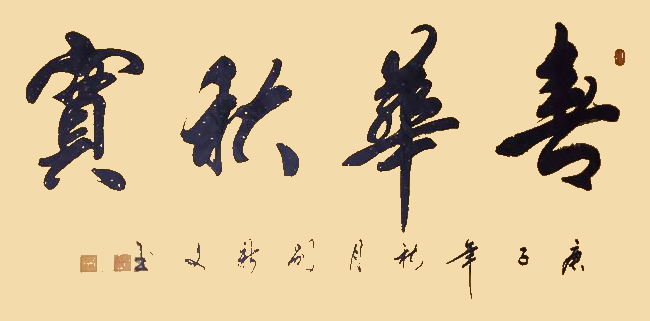 春華秋實
庚子年秋月劉新文